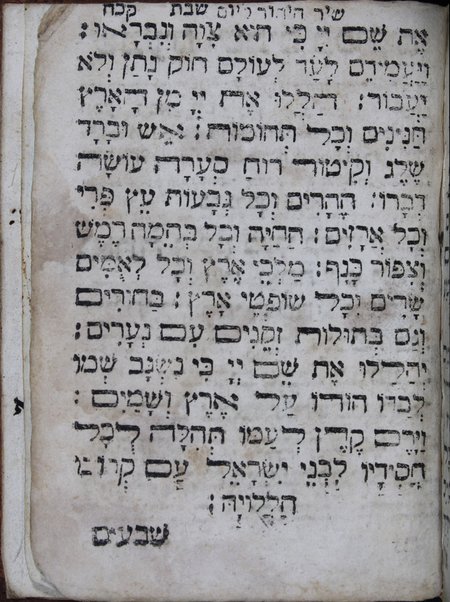 שיר היחוד ליום שבת קכח
אֶת שֵׁם יְיָ כִּי הוּא צִוָּה וְנִבְרָאוּ:
וַיַּעֲמִידֵם לָעַד לְעוֹלָם חוֹק נָתַן וְלֹא
יַעֲבוֹר: הַלְלוּ אֶת יְיָ מִן הָאָרֶץ
תַּנִּינִים וְכָל תְּהוֹמוֹת: אֵשׁ וּבָרָד
שֶׁלֶג וְקִיטוֹר רוּחַ סְעָרָה עוֹשָׂה
דְבָרוֹ: הֶהָרִים וְכָל גְּבָעוֹת עֵץ פְּרִי
וְכָל אֲרָזִים: הַחַיָּה וְכָל בְּהֵמָה רֶמֶשׂ
וְצִפּוֹר כָּנָף: מַלְכֵי אֶרֶץ וְכָל לְאֻמִּים
שָׂרִים וְכָל שׁוֹפְטֵי אָרֶץ: בַּחוּרִים
וְגַם בְּתוּלוֹת זְקֵנִים עִם נְעָרִים:
יְהַלְלוּ אֶת שֵׁם יְיָ כִּי נִשְׂגָּב שְׁמוֹ
לְבַדּוֹ הוֹדוֹ עַל אֶרֶץ וְשָׁמָיִם:
וַיָּרֶם קֶרֶן לְעַמּוֹ תְּהִלָּה לְכָל
חֲסִידָיו לִבְנֵי יִשְׂרָאֵל עַם קְרוֹבוֹ
הַלְלוּיָהּ:
שבעים